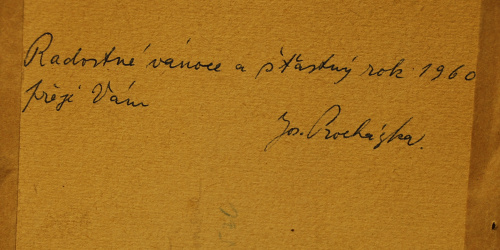 Radostné vánoce a šťastný rok 1960
přeji Vám
Jos. Procházka.